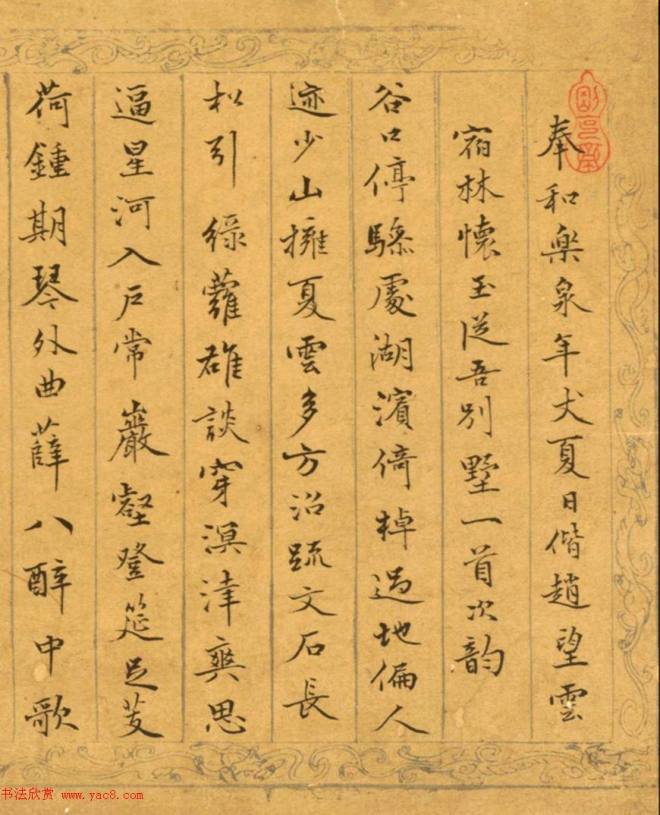 奉和樂泉年丈夏日偕趙望雲
宿林懷玉從吾別墅一首次韵
谷口停驂處湖濱倚棹過地偏人
迹少山擁夏雲多方沼疏文石長
松引綠蘿雄談穿溟涬爽思
逼星河入戶常巖壑登筵足芰
荷鍾期琴外曲薛八醉中歌
书法欣赏 www.yac8.com